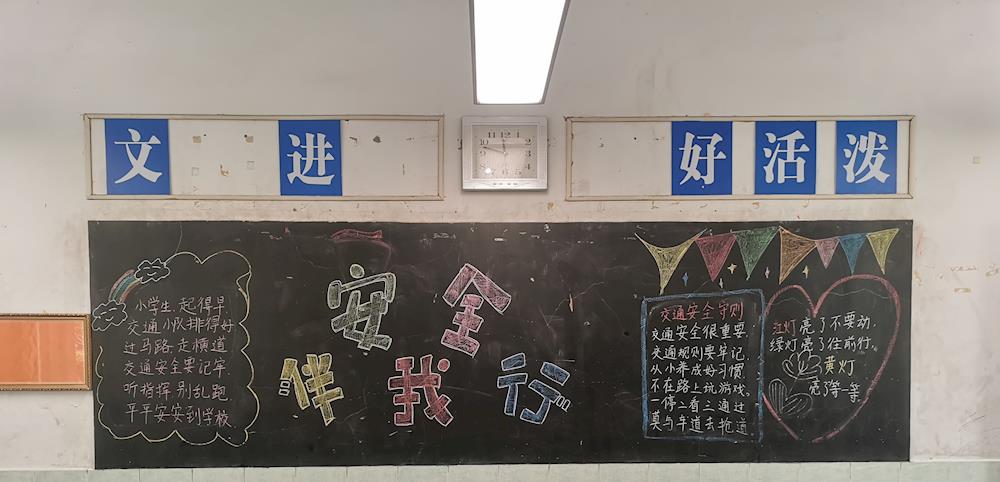 文 进
好活泼
小学生,起得早
交通小队排得好
过马路,走横道
交通安全要记牢
听指挥,别乱跑
平平安安到学校
安全
伴我行
交通安全守则
交通安全很重要,
交通规则要牢记,
从小养成好习惯,
不在路上玩游戏。
一停二看三通过
莫与车道去抢道
红灯亮了不要动,
绿灯亮了往前行,
黄灯
亮了等一等